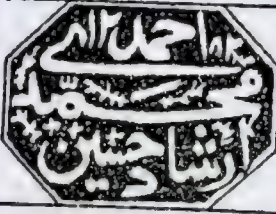 احمدے
محمد
ارشاد حسین